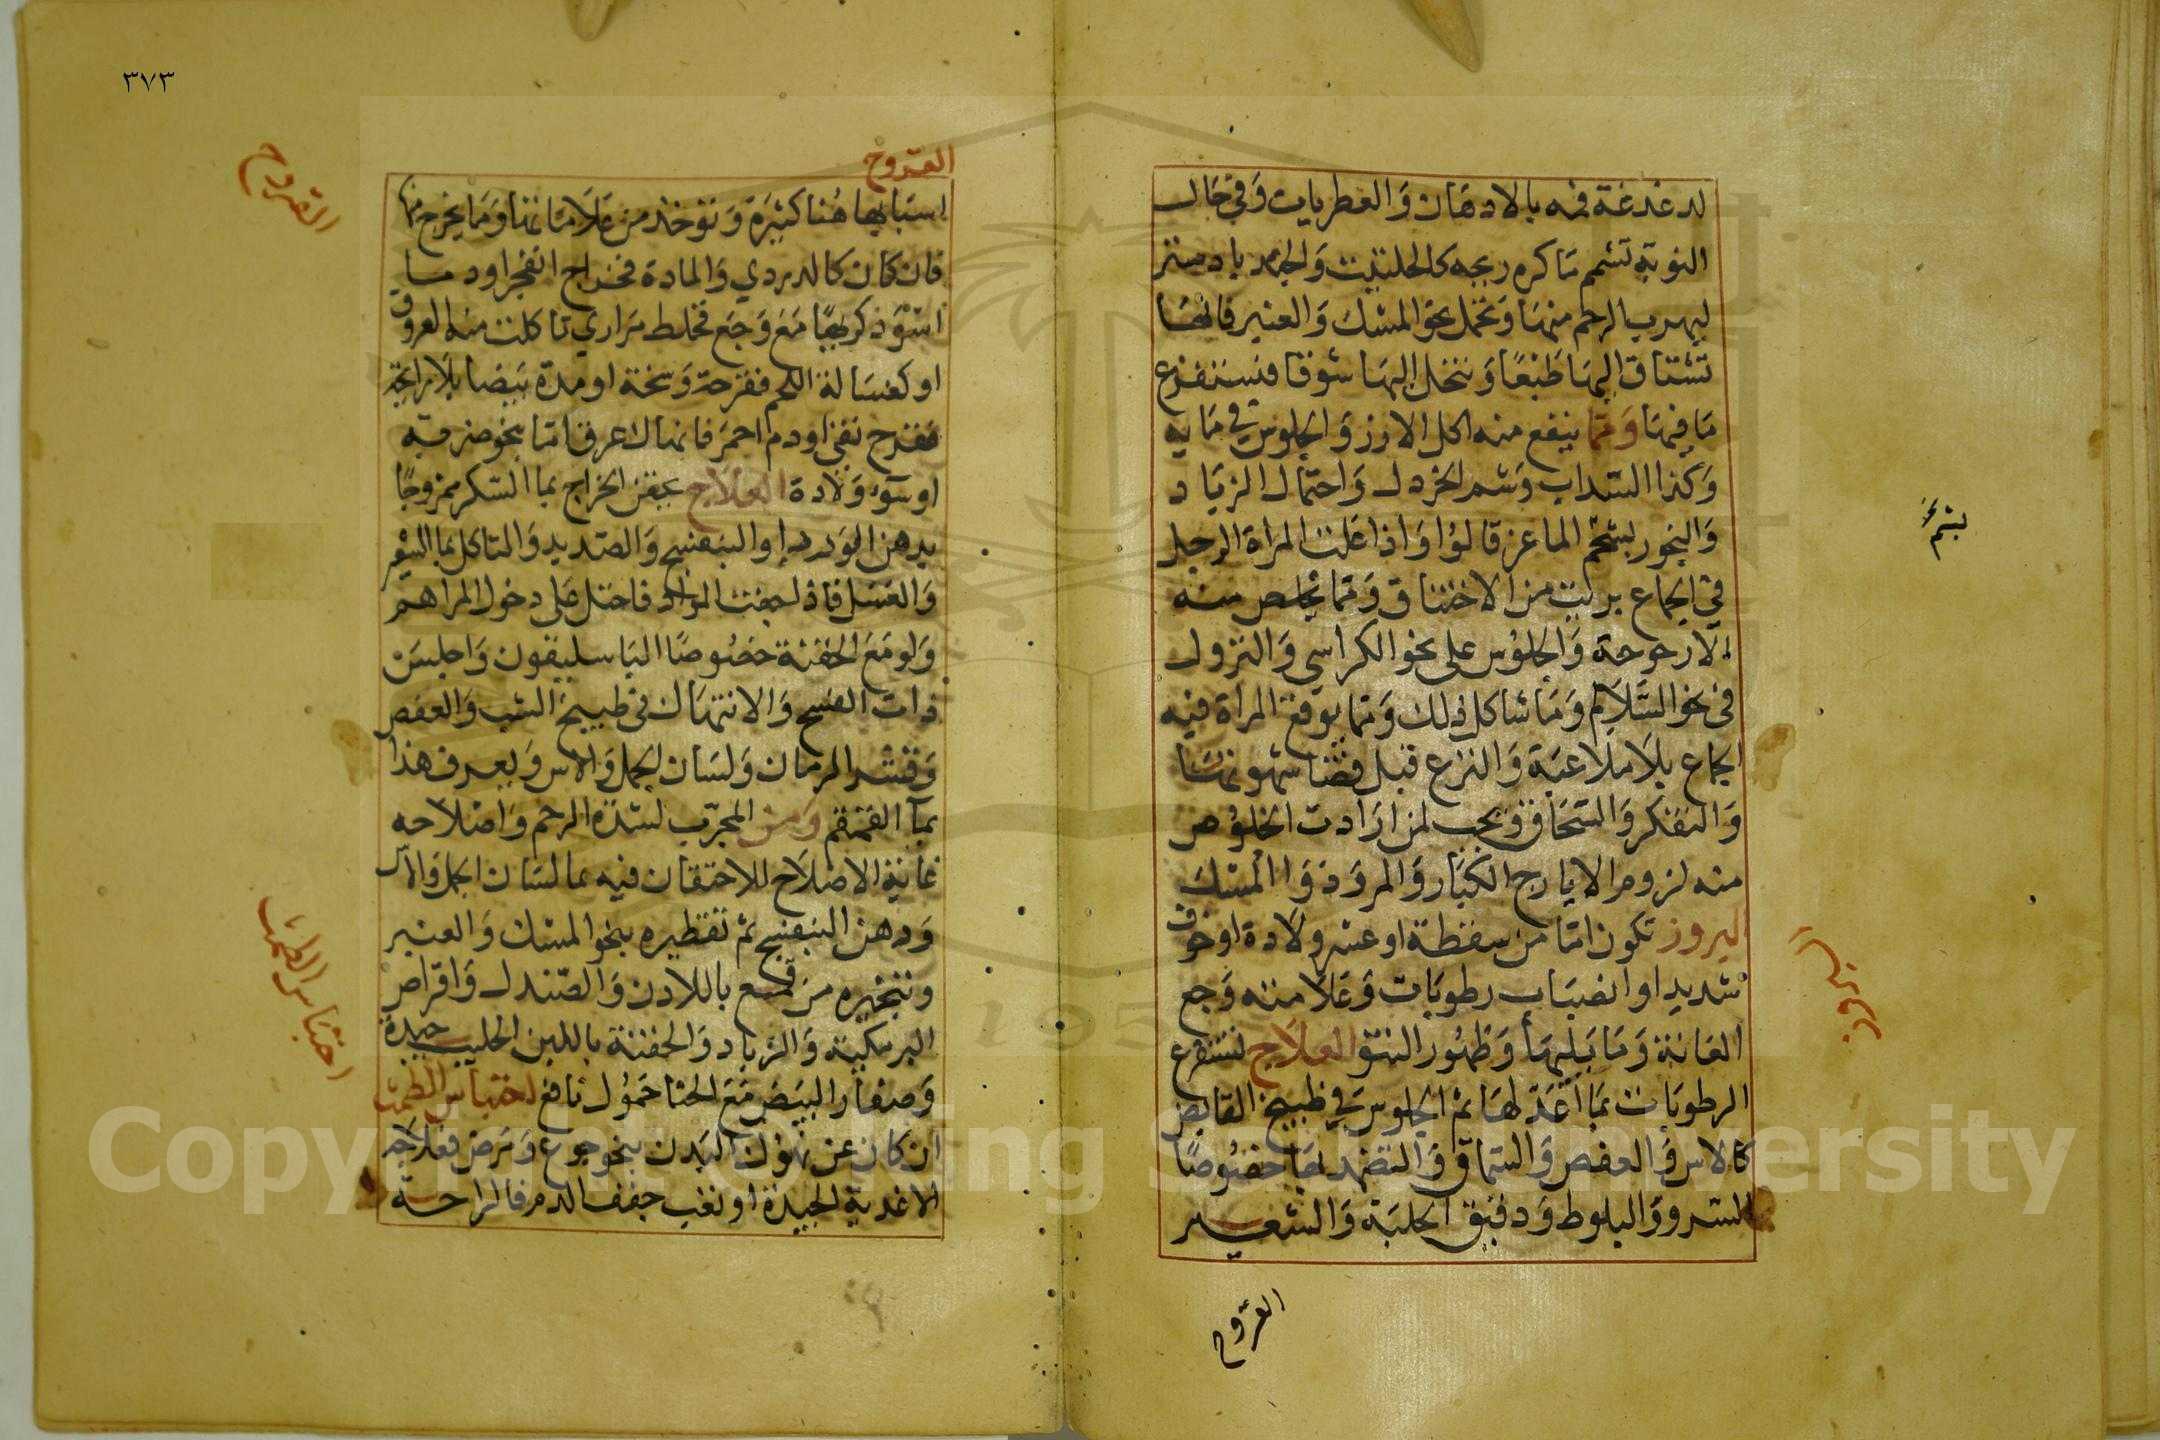 لدغدغة فمه بالادهان والعطريات وفي حال
النوبة تشمم ما كره ريحه كالحلتيت والجندبادستر
ليهرب الرحم منها وتحمل نحو المسك والعنبر فانها
تشتاق اليها طبعا وتنحل اليها شوقا فتستفرغ
ما فيها ومما ينفع منه اكل الارز والجلوس في مايه
وكذا السداب وشم الخردل واحتمال الزباد
والبخور بشحم الماعز قالوا واذا علت المراة الرجل
في الجماع بريت من الاختناق ومما يخلص منه
الارجوحة والجلوس على نحو الكراسي والنزول
في نحو السلالم وما شاكل ذلك ومما يوقع المراة فيه
الجماع بلا ملاعبة والنزع قبل قضا شهوتها
والتفكر والسحاق ويجب لمن ارادت الخلوص
منه لزوم الايارج الكبار والمرود والمسك
البروز تكون اما من سقطة او عسر ولادة او خوف
شديد او انصباب رطوبات وعلامته وجع
العانة وما يليها وظهور النتو العلاج تستفرغ
الرطوبات بما اعد لها ثم الجلوس في طبيخ القابض
كالاس والعفص والسماق والتضمد بها خصوصا
السرو والبلوط ودقيق الحلبة والشعير
القروح
بشحم
البروز
٣٧٣
القروح
اسبابها هنا كثيرة وتوخذ من علاماتها وما يخرج منها
فان كان كالدردي والمادة فخراج انفجر او دما
اسود كريها مع وجع فخلط مراري تاكلت منه العروق
او كغسالة اللحم فقرحة وسخة او مدة بيضا بلا رايحة
فقرح نقي او دم احمر فانهاك عرق اما بنحو ضربة
او سوء ولادة العلاج يحقن الخراج بما السكر ممزوجا
بدهن الورد او البنفسج والصديد والتاكل بما الشعير
والعسل فاذ لحقت المواد فاحتل على دخول المراهم
ولو مع الحقنة خصوصا الباسليقون واجلس
ذات الفسح والانتهاك في طبيخ الشب والعفص
وقشر الرمان ولسان الحمل والاس ويعرف هذا
بمآ القمقم ومن المجرب لشدة الرحم واصلاحه
غاية الاصلاح للاحتقان فيه بما لسان الحمل والاس
ودهن البنفسج ثم تقطيره بنحو المسك والعنبر
وتبخيره من قمع باللادن والصندل واقراص
البرمكية والزباد والحقنة باللبن الحليب جيدة
وصفار البيض مع الحنا حمول نافع احتباس الطمث
ان كان عن نهوك البدن بنحو جوع ومرض فعلاجه
الاغدية الجيدة او تعب جفف الدم فالراحة
القروح
احتباس الطمث